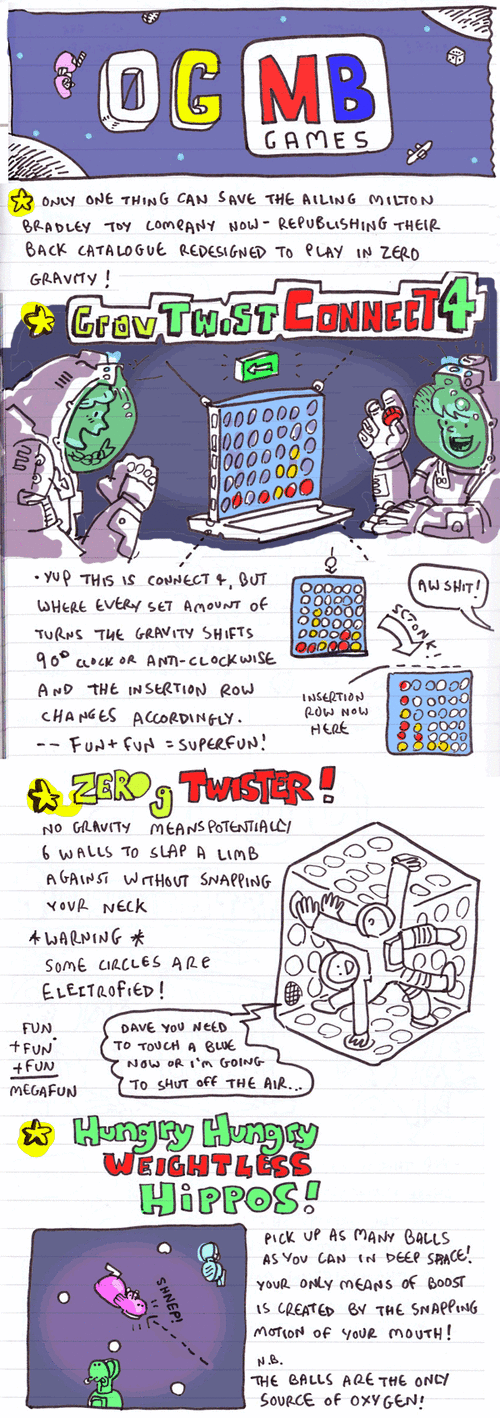 OG MB
GAMES
ONLY ONE THING CAN SAVE THE AILING MILTON
BRADLEY TOY COMPANY NOW - REPUBLISHING THEIR
BACK CATALOGUE REDESIGNED TO PLAY IN ZERO
GRAVITY!
Grav TWIST CONNECT 4
• YUP THIS IS CONNECT 4, BUT
WHERE EVERY SET AMOUNT OF
TURNS THE GRAVITY SHIFTS
90° CLOCK OR ANTI-CLOCKWISE
AND THE INSERTION ROW
CHANGES ACCORDINGLY.
-- FUN + FUN = SUPERFUN!
AW SHIT!
SCTONK!
INSERTION
ROW NOW
HERE
ZERO g TWISTER!
NO GRAVITY MEANS POTENTIALLY
6 WALLS TO SLAP A LIMB
AGAINST WITHOUT SNAPPING
YOUR NECK
* WARNING *
SOME CIRCLES ARE
ELECTROFIED!
FUN
+ FUN
+ FUN
MEGAFUN
DAVE YOU NEED
TO TOUCH A BLUE
NOW OR I'M GOING
TO SHUT OFF THE AIR...
Hungry Hungry
WEIGHTLESS
HiPPOS!
SHNEP!
PICK UP AS MANY BALLS
AS YOU CAN IN DEEP SPACE!
YOUR ONLY MEANS OF BOOST
IS CREATED BY THE SNAPPING
MOTION OF YOUR MOUTH!
N.B.
THE BALLS ARE THE ONLY
SOURCE OF OXYGEN!